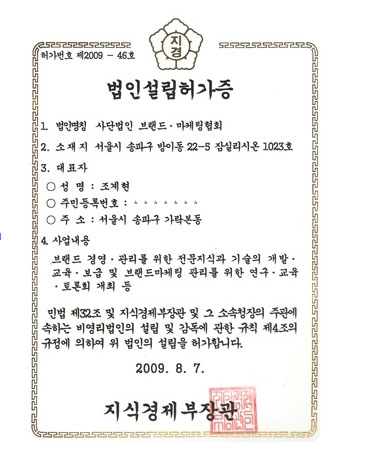 지경
허가번호 제2009 - 46호
법인설립허가증
1. 법인명칭 사단법인 브랜드·마케팅협회
2. 소재지 서울시 송파구 방이동 22-5 잠실리시온 1023호
3. 대표자
○ 성 명 : 조계현
○ 주민등록번호 : * * * * * * *
○ 주 소 : 서울시 송파구 가락본동
4. 사업내용
브랜드 경영·관리를 위한 전문지식과 기술의 개발·
교육·보급 및 브랜드마케팅 관리를 위한 연구·교육
·토론회 개최 등
민법 제32조 및 지식경제부장관 및 그 소속청장의 주관에
속하는 비영리법인의 설립 및 감독에 관한 규칙 제4조의
규정에 의하여 위 법인의 설립을 허가합니다.
2009. 8. 7.
지식경제부장관